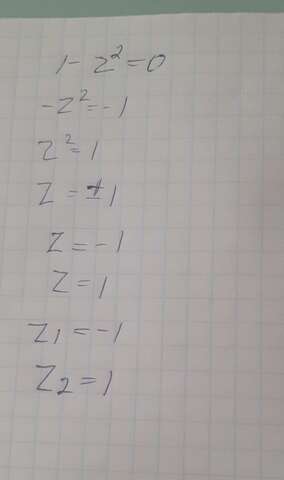 1 - z² = 0
-z² = -1
z² = 1
z = ±1
z = -1
z = 1
z₁ = -1
z₂ = 1